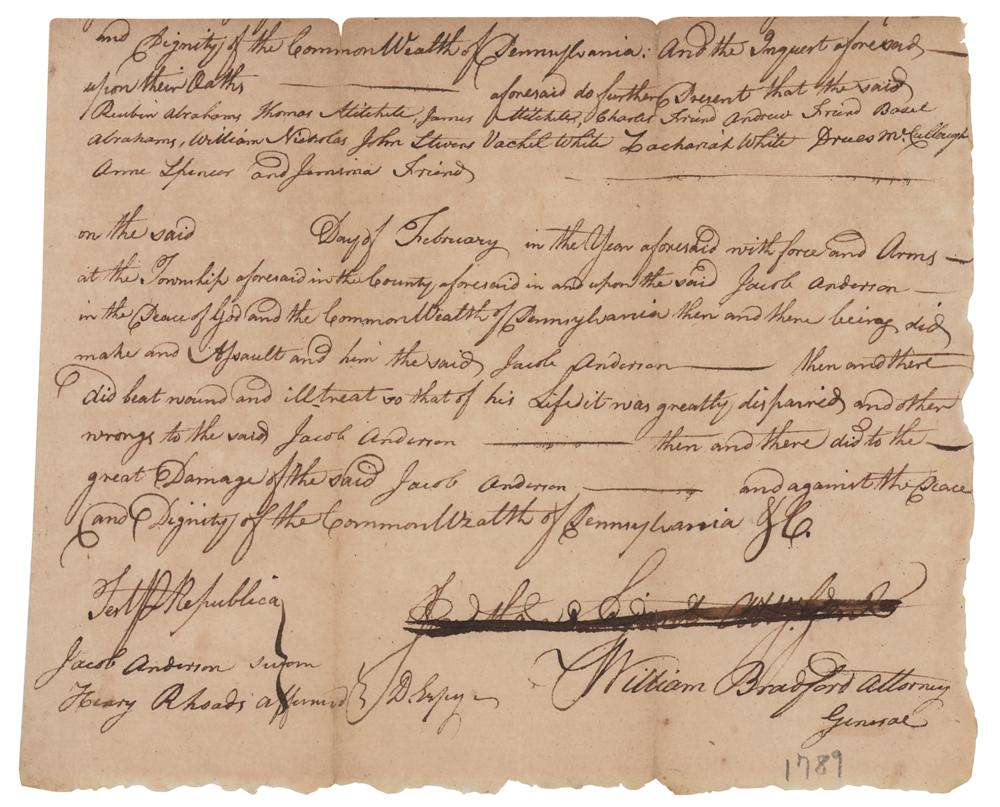 and Dignity of the CommonWealth of Pennsylvania: And the Inquest aforesaid
upon their Oaths aforesaid do further Present that the said
Reubin Abrahams Thomas Mitchele, James Mitchele, Charles Friend Andrew Friend Basel
Abrahams, William Nickolas John Stevens Vachel White Zachariah White Drues McCullough
Anne Spencer and Jemima Friend
on the said Day of February in the Year aforesaid with force and Arms
at the Township aforesaid in the County aforesaid in and upon the said Jacob Anderson
in the Peace of God and the CommonWealth of Pennsylvania then and there being did
make and Assault and him the said Jacob Anderson then and there
did beat wound and illtreat so that of his Life it was greatly dispaired and other
wrongs to the said Jacob Anderson then and there did to the
great Damage of the said Jacob Anderson and against the Peace
and Dignity of the CommonWealth of Pennsylvania &C.
Test P Republica
Jacob Anderson sworn
Henry Rhoads affirmed } D. Espy
William Bradford Attorney
General
1789